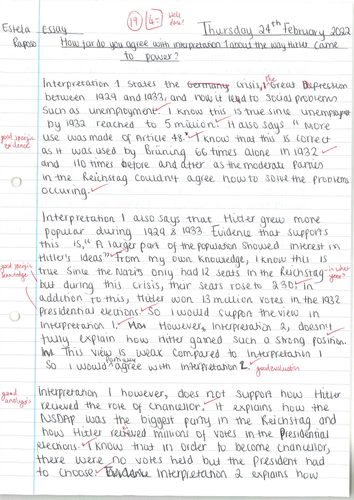 Estela Raposo
Essay
19
L4=
Well done!
Thursday 24th February 2022
How far do you agree with interpretation 1 about the way Hitler came
to power?
Interpretation 1 states the Germany Crisis, the Great Depression
between 1929 and 1933, and how it lead to social problems
such as unemployment. I know this is true since unemployment
by 1932 reached to 5 million. It also says "More
good specific evidence
use was made of Article 48." I know that this is correct
as it was used by Brüning 66 times alone in 1932
and 110 times before and after as the moderate parties
in the Reichstag couldn't agree how to solve the problems
occuring.
Interpretation 1 also says that Hitler grew more
popular during 1929 & 1933. Evidence that supports
this is, "A larger part of the population showed interest in
Hitler's ideas" From my own knowledge, I know this is
good specific knowledge
true since the Nazi's only had 12 seats in the Reichstag
in what year?
but during this crisis, their seats rose to 230. in
addiction to this, Hitler won 13 million votes in the 1932
Presidential elections. So I would support the view in
Interpretation 1. However, Interpretation 2, doesn't
fully explain how Hitler gained such a strong position.
This view is weak compared to Interpretation 1
so I would partially agree with Interpretation 2.
good evaluation
good analysis
Interpretation 1 however, does not support how Hitler
recieved the role of chancellor. It explains how the
NSDAP was the biggest party in the Reichstag and
how Hitler recieved millions of votes in the Presidential
elections. I know that in order to become chancellor,
there were no votes held but the President had
to choose. Evidence Interpretation 2 explains how